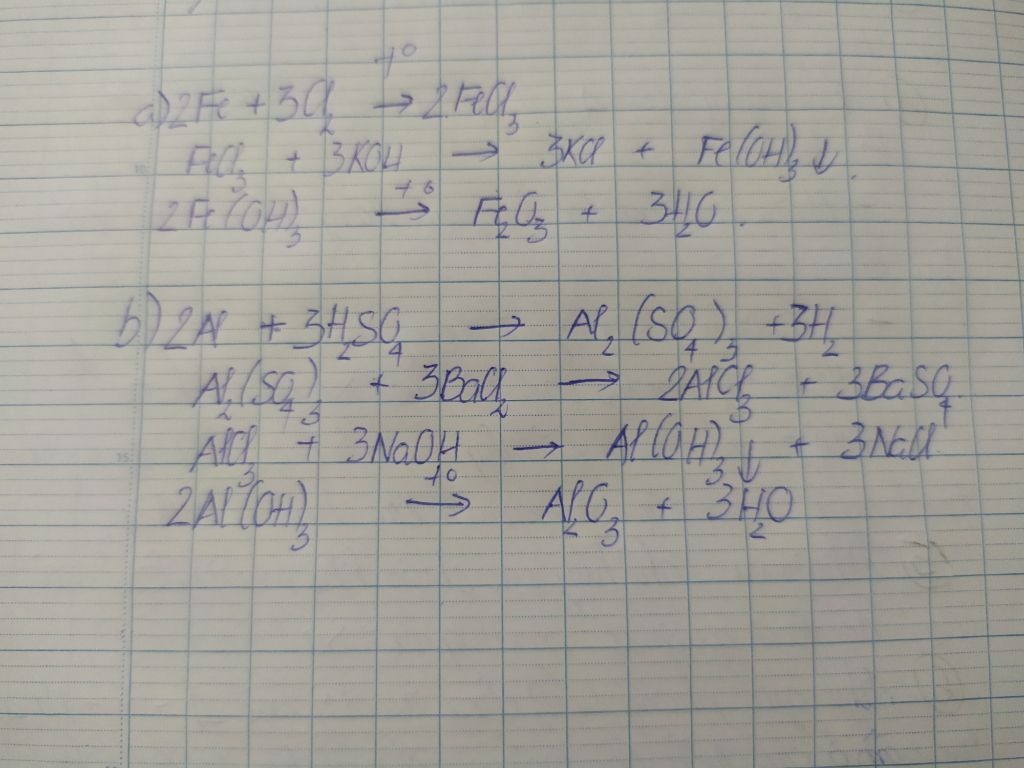 a) 2Fe + 3Cl₂ →(t°) 2FeCl₃
FeCl₃ + 3KOH → 3KCl + Fe(OH)₃↓.
2Fe(OH)₃ →(t°) Fe₂O₃ + 3H₂O.
b) 2Al + 3H₂SO₄ → Al₂(SO₄)₃ + 3H₂
Al₂(SO₄)₃ + 3BaCl₂ → 2AlCl₃ + 3BaSO₄.
AlCl₃ + 3NaOH → Al(OH)₃↓ + 3NaCl
2Al(OH)₃ →(t°) Al₂O₃ + 3H₂O